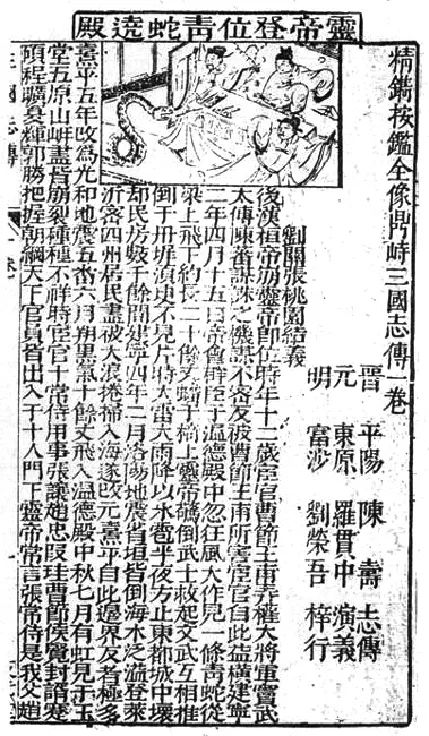 靈帝登位靑蛇遶殿
精鐫按鑑全像鼎峙三國志傳一卷
晋 平陽 陳壽 志傳
元 東原 羅貫中 演義
明 富沙 劉榮吾 梓行
劉關張桃園結義
後漢桓帝崩靈帝即位時年十二歲宦官曹節王甫弄權大將軍竇武
太傅陳蕃謀誅之機謀不密反被曹節王甫所害宦官自此益橫建寧
二年四月十五日帝會群臣于溫德殿中忽狂風大作見一條靑蛇從
梁上飛下約長二十餘丈蟠于椅上靈帝驚倒武士救起文武互相推
倒于丹墀須臾不見片時大雷大雨降以氷雹半夜方止東都城中壞
却民房數千餘間建寧四年二月洛陽地震省垣皆倒海水泛溢登萊
沂密四州居民盡被大浪捲掃入海遂改元熹平自此邊界反者極多
熹平五年改為光和地震五番六月朔黑氣十餘丈飛入溫德殿中秋七月有虹見于玉
堂五原山岸盡皆崩裂種種不祥時宦官十常侍用事張讓趙忠段珪曹節侯覽封諝蹇
碩程曠夏輝郭勝把握朝綱天下官員省出入于十人門下靈帝常言張常侍是我父趙
三國志傳